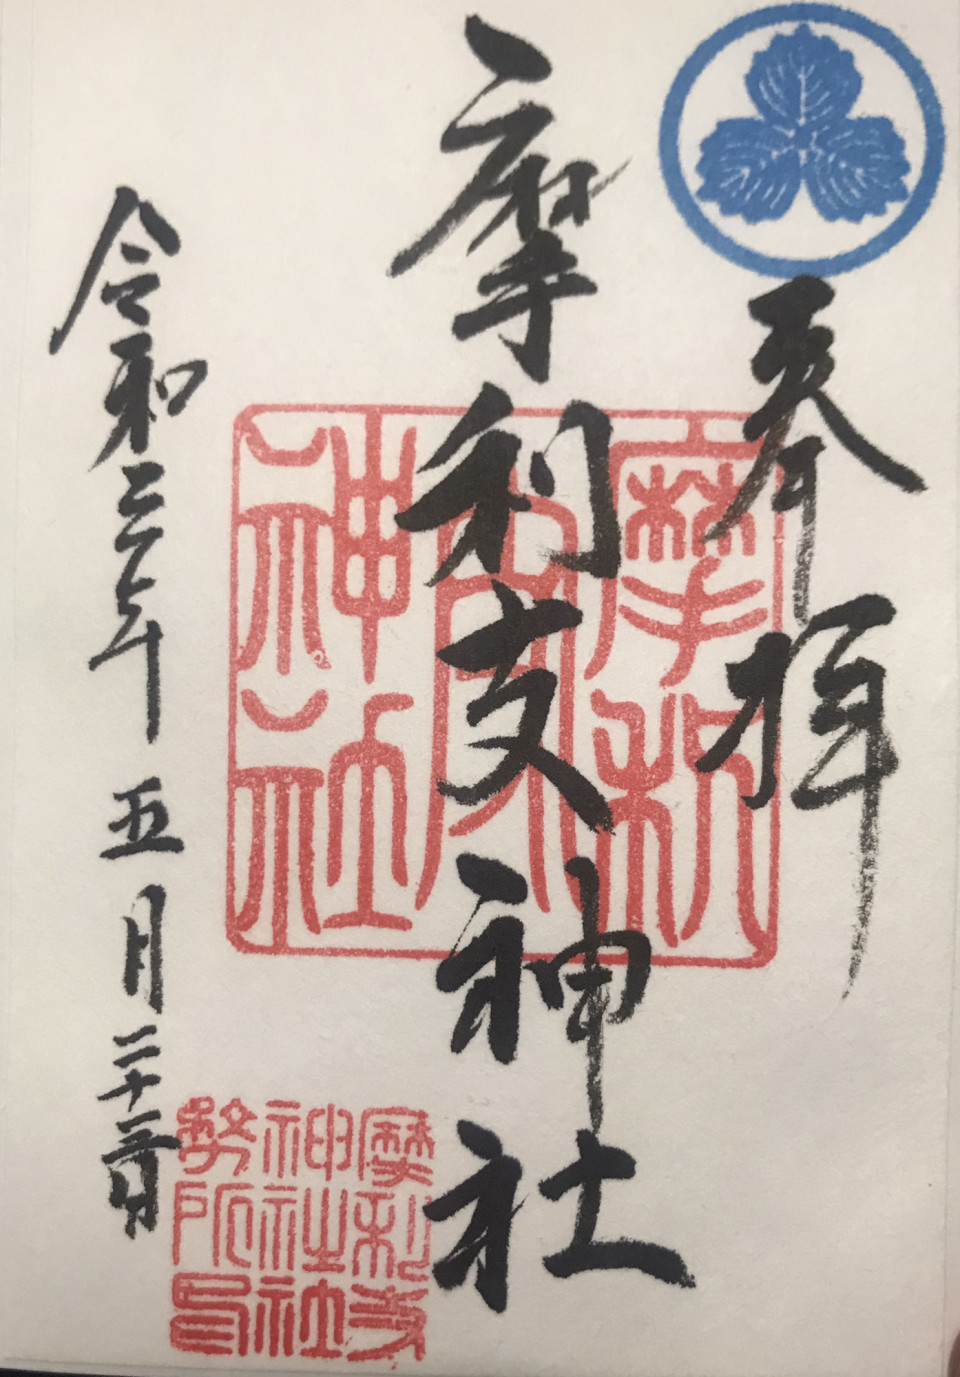 奉拝
摩利支神社
令和三年 五月二十三日
摩利
支
神社
摩利支
神社社
務所印